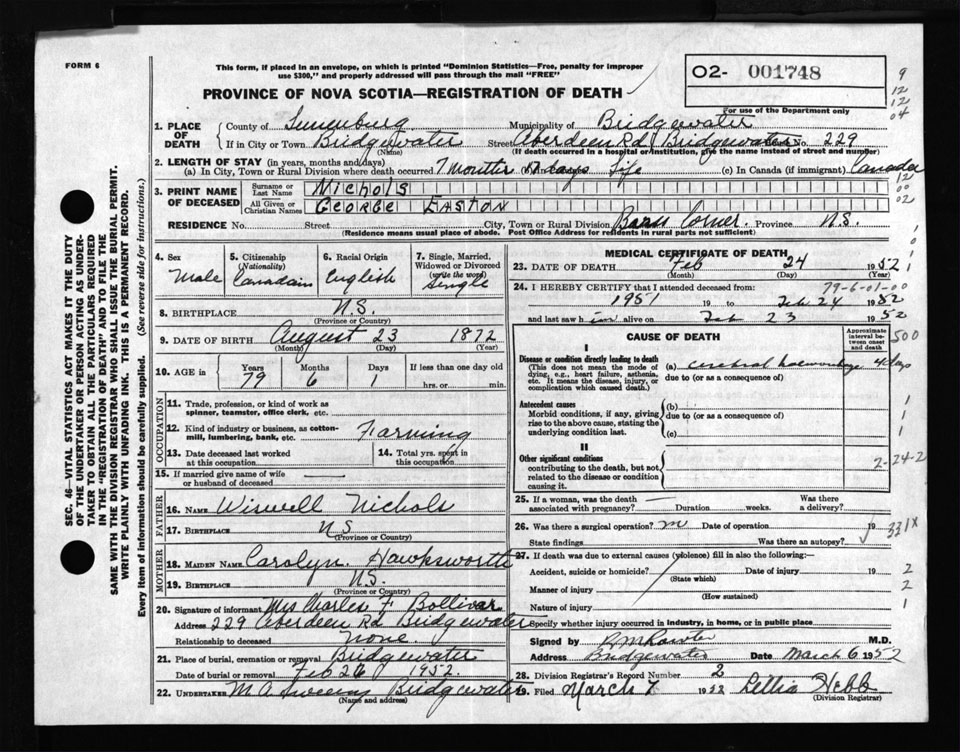 FORM 6
This form, if placed in an envelope, on which is printed "Dominion Statistics—Free, penalty for improper
use $300," and properly addressed will pass through the mail "FREE"
PROVINCE OF NOVA SCOTIA—REGISTRATION OF DEATH
O2- 001748
For use of the Department only
9
12
12
04
1. PLACE OF DEATH
County of Lunenburg Municipality of Bridgewater
If in City or Town Bridgewater Street Aberdeen Rd Bridgewater No. 229
(Name) (If death occurred in a hospital or institution, give the name instead of street and number)
2. LENGTH OF STAY (in years, months and days)
(a) In City, Town or Rural Division where death occurred 7 months days Life (c) In Canada (if immigrant) Canada
3. PRINT NAME OF DECEASED
Surname or Last Name NICHOLS
All Given or Christian Names GEORGE EASTON
12
00
02
RESIDENCE No. Street City, Town or Rural Division Corner. Province N.S.
(Residence means usual place of abode. Post Office Address for residents in rural parts not sufficient)
4. Sex Male
5. Citizenship (Nationality) Canadian
6. Racial Origin English
7. Single, Married, Widowed or Divorced (write the word) Single
8. BIRTHPLACE N.S.
(Province or Country)
9. DATE OF BIRTH August 23 1872
(Month) (Day) (Year)
10. AGE in Years 79 Months 6 Days 1 If less than one day old
hrs. or min.
OCCUPATION
11. Trade, profession, or kind of work as spinner, teamster, office clerk, etc.
12. Kind of industry or business, as cotton-mill, lumbering, bank, etc. Farming
13. Date deceased last worked at this occupation
14. Total yrs. spent in this occupation
15. If married give name of wife or husband of deceased
FATHER
16. NAME Wiswell Nichols
17. BIRTHPLACE N.S
(Province or Country)
MOTHER
18. MAIDEN NAME Carolyn Hawksworth
19. BIRTHPLACE N.S.
(Province or Country)
20. Signature of informant Mrs Charles F Bollivar
Address 229 Aberdeen Rd Bridgewater
Relationship to deceased None.
21. Place of burial, cremation or removal Bridgewater
Date of burial or removal Feb 26 1952
22. UNDERTAKER M A Sweeny Bridgewater
(Name and address)
MEDICAL CERTIFICATE OF DEATH
23. DATE OF DEATH Feb 24 1952
(Month) (Day)
24. I HEREBY CERTIFY that I attended deceased from: 79-6-01-00
1951 19 to Feb 24 1952
and last saw him alive on Feb 23 1952
CAUSE OF DEATH
Approximate interval between onset and death
I
Disease or condition directly leading to death
(This does not mean the mode of dying, e.g., heart failure, asthenia, etc. It means the disease, injury, or complication which caused death.)
(a) cerebral haemorrhage 4 days
due to (or as a consequence of)
Antecedent causes
Morbid conditions, if any, giving rise to the above cause, stating the underlying condition last.
(b)
due to (or as a consequence of)
(c)
II
Other significant conditions
contributing to the death, but not related to the disease or condition causing it.
500
2-24-2
25. If a woman, was the death associated with pregnancy? Duration weeks. Was there a delivery?
26. Was there a surgical operation? Date of operation 19
State findings Was there an autopsy?
331X
27. If death was due to external causes (violence) fill in also the following:—
Accident, suicide or homicide? Date of injury 19
(State which)
Manner of injury
(How sustained)
Nature of injury
Specify whether injury occurred in industry, in home, or in public place
2
2
1
Signed by M.D.
Address Bridgewater Date March 6 1952
28. Division Registrar's Record Number 2
29. Filed March 7 1952 Lellia Hebb
(Division Registrar)
SEC. 46—VITAL STATISTICS ACT MAKES IT THE DUTY
OF THE UNDERTAKER OR PERSON ACTING AS UNDER-
TAKER TO OBTAIN ALL THE PARTICULARS REQUIRED
IN THE "REGISTRATION OF DEATH" AND TO FILE THE
SAME WITH THE DIVISION REGISTRAR WHO SHALL ISSUE THE BURIAL PERMIT.
WRITE PLAINLY WITH UNFADING INK. THIS IS A PERMANENT RECORD.
Every item of information should be carefully supplied. (See reverse side for instructions.)